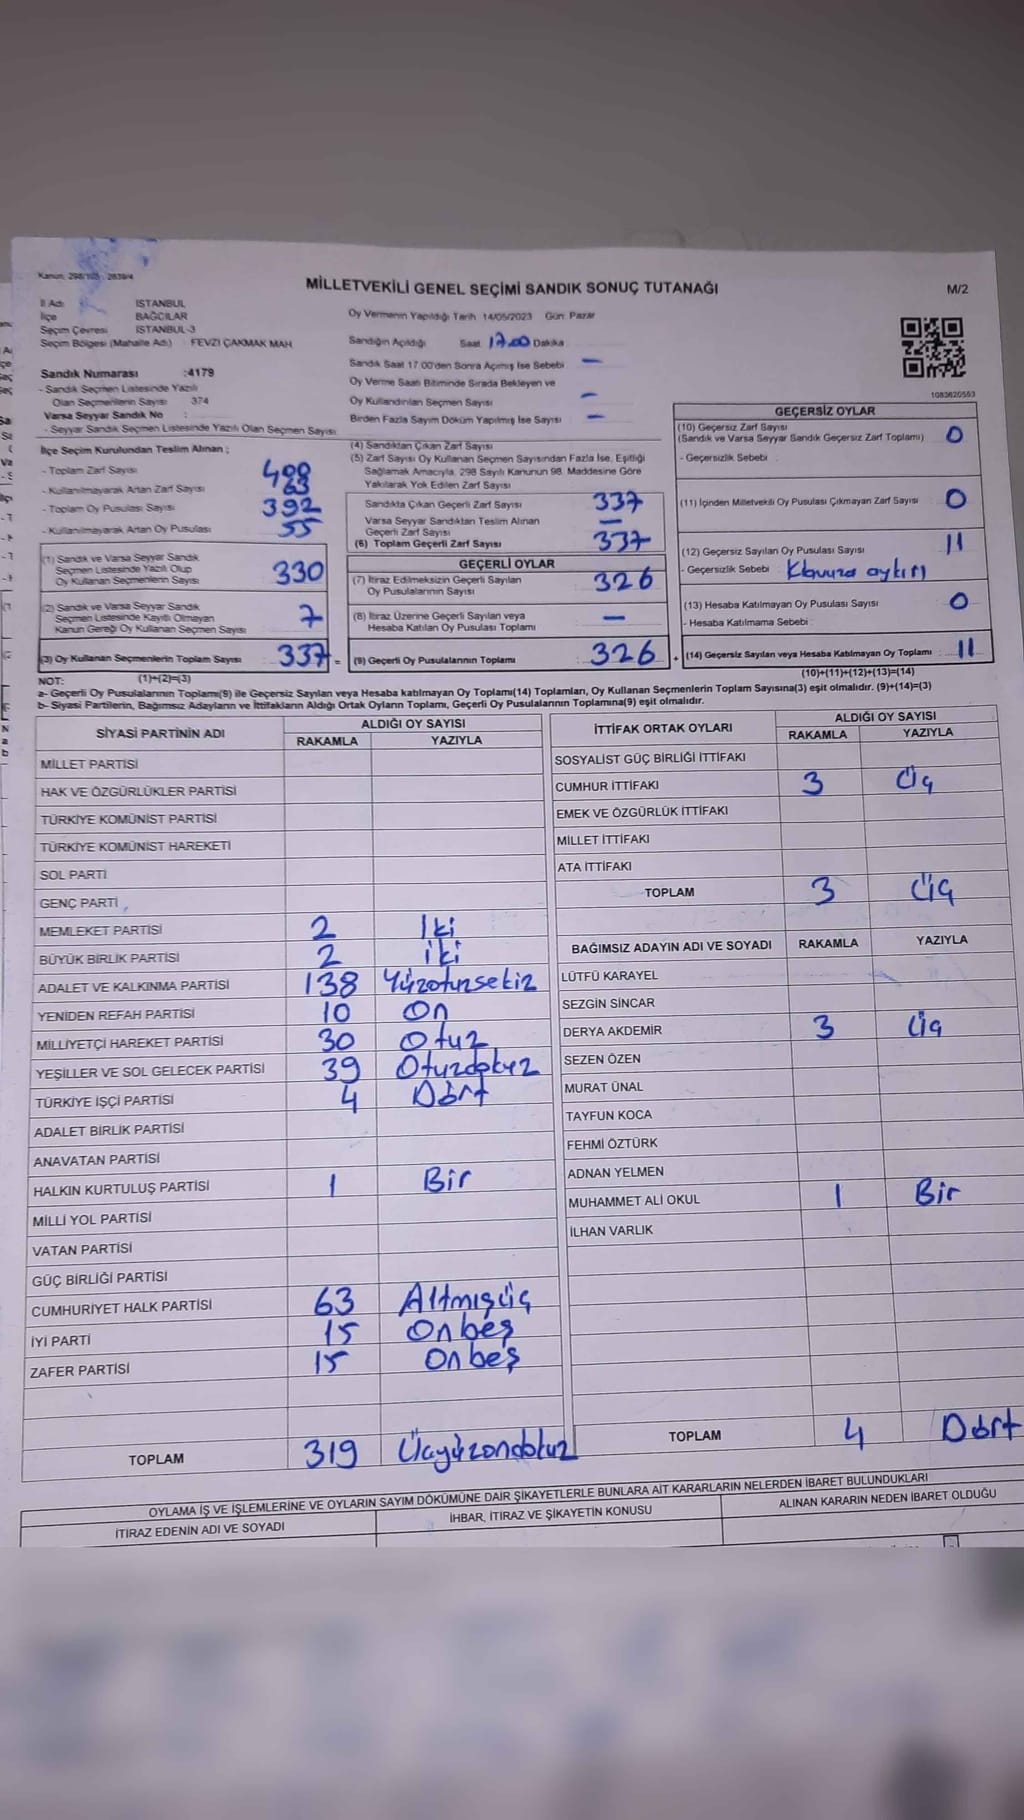 Kanun: 298/105 - 2839/4
MİLLETVEKİLİ GENEL SEÇİMİ SANDIK SONUÇ TUTANAĞI
M/2
İl Adı İSTANBUL
İlçe BAĞCILAR
Seçim Çevresi İSTANBUL-3
Seçim Bölgesi (Mahalle Adı) : FEVZİ ÇAKMAK MAH
Sandık Numarası :4179
- Sandık Seçmen Listesinde Yazılı
Olan Seçmenlerin Sayısı 374
Varsa Seyyar Sandık No :
- Seyyar Sandık Seçmen Listesinde Yazılı Olan Seçmen Sayısı
Oy Vermenin Yapıldığı Tarih 14/05/2023 Gün: Pazar
Sandığın Açıldığı Saat 17.00 Dakika
Sandık Saat 17.00'den Sonra Açımış İse Sebebi —
Oy Verme Saati Bitiminde Sırada Bekleyen ve
Oy Kullandırılan Seçmen Sayısı —
Birden Fazla Sayım Döküm Yapılmış İse Sayısı —
1083620553
İlçe Seçim Kurulundan Teslim Alınan ;
- Toplam Zarf Sayısı 400
- Kullanılmayarak Artan Zarf Sayısı 63
- Toplam Oy Pusulası Sayısı 392
- Kullanılmayarak Artan Oy Pusulası 55
(1) Sandık ve Varsa Seyyar Sandık
Seçmen Listesinde Yazılı Olup
Oy Kullanan Seçmenlerin Sayısı 330
(2) Sandık ve Varsa Seyyar Sandık
Seçmen Listesinde Kayıtlı Olmayan
Kanun Gereği Oy Kullanan Seçmen Sayısı 7
(3) Oy Kullanan Seçmenlerin Toplam Sayısı : 337 =
(4) Sandıktan Çıkan Zarf Sayısı
(5) Zarf Sayısı Oy Kullanan Seçmen Sayısından Fazla İse, Eşitliği
Sağlamak Amacıyla, 298 Sayılı Kanunun 98. Maddesine Göre
Yakılarak Yok Edilen Zarf Sayısı
Sandıkta Çıkan Geçerli Zarf Sayısı 337
Varsa Seyyar Sandıktan Teslim Alınan
Geçerli Zarf Sayısı —
(6) Toplam Geçerli Zarf Sayısı 337
GEÇERLİ OYLAR
(7) İtiraz Edilmeksizin Geçerli Sayılan
Oy Pusulalarının Sayısı 326
(8) İtiraz Üzerine Geçerli Sayılan veya
Hesaba Katılan Oy Pusulası Toplamı —
(9) Geçerli Oy Pusulalarının Toplamı : 326 +
GEÇERSİZ OYLAR
(10) Geçersiz Zarf Sayısı
(Sandık ve Varsa Seyyar Sandık Geçersiz Zarf Toplamı) 0
- Geçersizlik Sebebi
(11) İçinden Milletvekili Oy Pusulası Çıkmayan Zarf Sayısı 0
(12) Geçersiz Sayılan Oy Pusulası Sayısı 11
- Geçersizlik Sebebi
(13) Hesaba Katılmayan Oy Pusulası Sayısı 0
- Hesaba Katılmama Sebebi
(14) Geçersiz Sayılan veya Hesaba Katılmayan Oy Toplamı : 11
NOT: (1)+(2)=(3) (10)+(11)+(12)+(13)=(14)
a- Geçerli Oy Pusulalarının Toplamı(9) ile Geçersiz Sayılan veya Hesaba katılmayan Oy Toplamı(14) Toplamları, Oy Kullanan Seçmenlerin Toplam Sayısına(3) eşit olmalıdır. (9)+(14)=(3)
b- Siyasi Partilerin, Bağımsız Adayların ve İttifakların Aldığı Ortak Oyların Toplamı, Geçerli Oy Pusulalarının Toplamına(9) eşit olmalıdır.
SİYASİ PARTİNİN ADI ALDIĞI OY SAYISI
RAKAMLA YAZIYLA
MİLLET PARTİSİ
HAK VE ÖZGÜRLÜKLER PARTİSİ
TÜRKİYE KOMÜNİST PARTİSİ
TÜRKİYE KOMÜNİST HAREKETİ
SOL PARTİ
GENÇ PARTİ
MEMLEKET PARTİSİ 2 İki
BÜYÜK BİRLİK PARTİSİ 2 iki
ADALET VE KALKINMA PARTİSİ 138 Yüzotuzsekiz
YENİDEN REFAH PARTİSİ 10 On
MİLLİYETÇİ HAREKET PARTİSİ 30 Otuz
YEŞİLLER VE SOL GELECEK PARTİSİ 39 Otuzdokuz
TÜRKİYE İŞÇİ PARTİSİ 4 Dört
ADALET BİRLİK PARTİSİ
ANAVATAN PARTİSİ
HALKIN KURTULUŞ PARTİSİ 1 Bir
MİLLİ YOL PARTİSİ
VATAN PARTİSİ
GÜÇ BİRLİĞİ PARTİSİ
CUMHURİYET HALK PARTİSİ 63 Altmışüç
İYİ PARTİ 15 Onbeş
ZAFER PARTİSİ 15 Onbeş
TOPLAM 319 Üçyüzondokuz
İTTİFAK ORTAK OYLARI ALDIĞI OY SAYISI
RAKAMLA YAZIYLA
SOSYALİST GÜÇ BİRLİĞİ İTTİFAKI
CUMHUR İTTİFAKI 3 Üç
EMEK VE ÖZGÜRLÜK İTTİFAKI
MİLLET İTTİFAKI
ATA İTTİFAKI
TOPLAM 3 Üç
BAĞIMSIZ ADAYIN ADI VE SOYADI RAKAMLA YAZIYLA
LÜTFÜ KARAYEL
SEZGİN SİNCAR
DERYA AKDEMİR 3 Üç
SEZEN ÖZEN
MURAT ÜNAL
TAYFUN KOCA
FEHMİ ÖZTÜRK
ADNAN YELMEN
MUHAMMET ALİ OKUL 1 Bir
İLHAN VARLIK
TOPLAM 4 Dört
OYLAMA İŞ VE İŞLEMLERİNE VE OYLARIN SAYIM DÖKÜMÜNE DAİR ŞİKAYETLERLE BUNLARA AİT KARARLARIN NELERDEN İBARET BULUNDUKLARI
İTİRAZ EDENİN ADI VE SOYADI İHBAR, İTİRAZ VE ŞİKAYETİN KONUSU ALINAN KARARIN NEDEN İBARET OLDUĞU